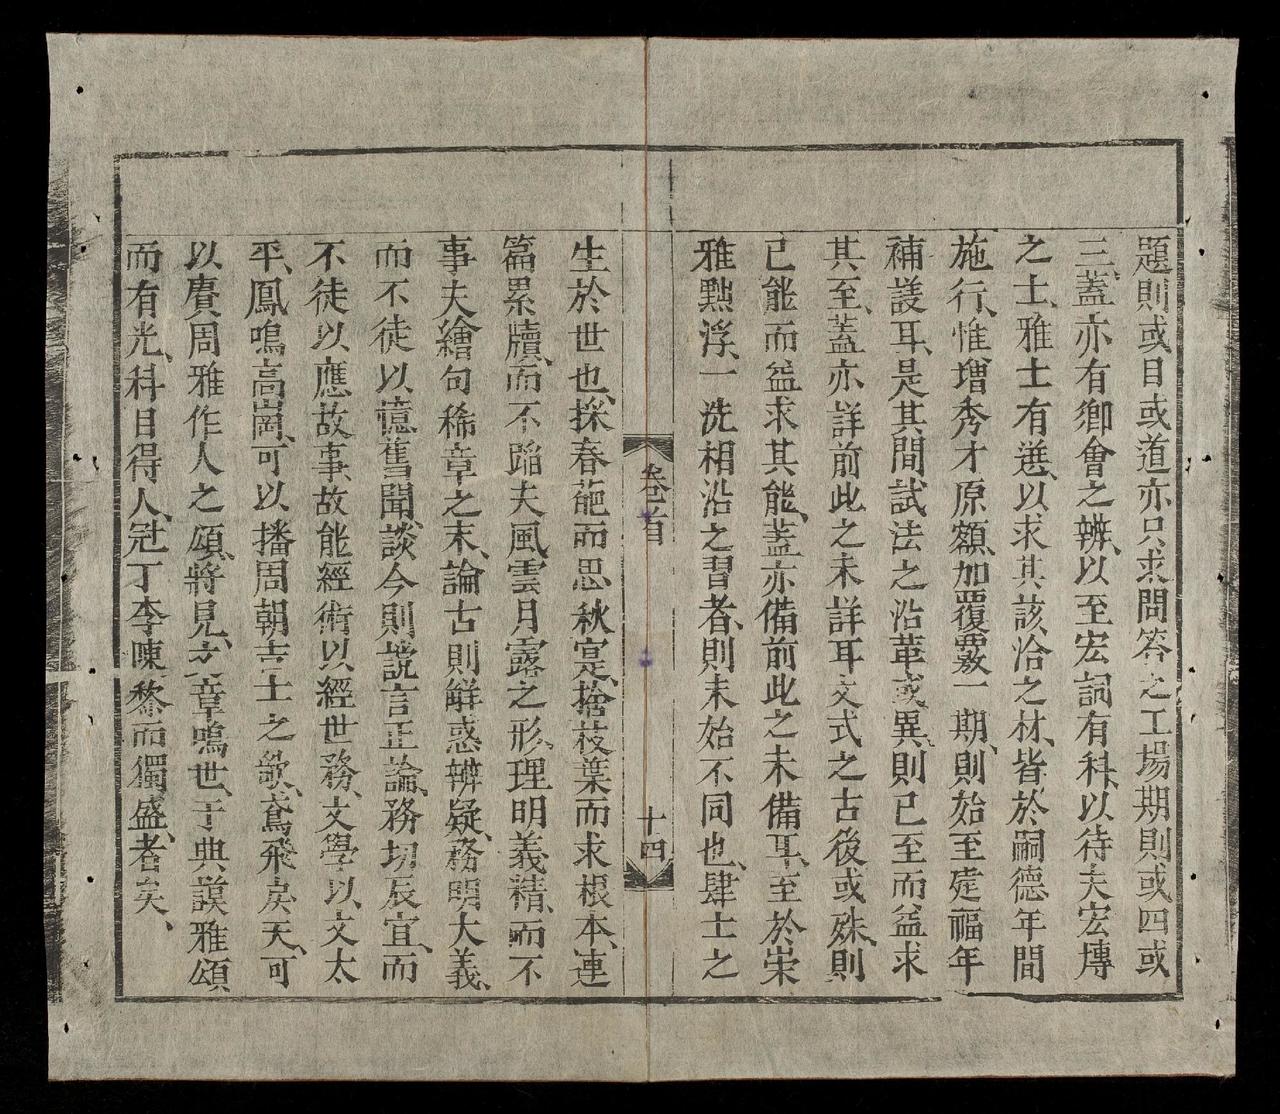 題則或目或道亦只求問答之工場期則或四或
三蓋亦有鄉會之辨、以至宏詞有科、以待夫宏博
之士、雅士有選、以求其該洽之材、皆於嗣德年間
施行、惟增秀才原額、加覆覈一期、則始至建福年
補設耳、是其間試法之沿革或異、則已至而益求
其至、蓋亦詳前此之未詳耳文式之古後或殊、則
已能而益求其能、蓋亦備前此之未備耳、至於崇
雅黜浮、一洗相沿之習者、則未始不同也、肆士之
卷首
十四
生於世也、採春葩而思秋寔、捨枝葉而求根本、連
篇累牘、而不蹈夫風雲月露之形、理明義精、而不
事夫繪句稀章之末、論古則解惑辨疑、務明大義、
而不徒以憶舊聞、談今則讜言正論、務切辰宜、而
不徒以應故事、故能經術以經世務、文學以文太
平、鳳鳴高崗、可以播周朝吉士之歌、鳶飛戾天、可
以賡周雅作人之頌、將見文章鳴世、于典謨雅頌
而有光、科目得人、冠丁李陳黎而獨盛、者矣、